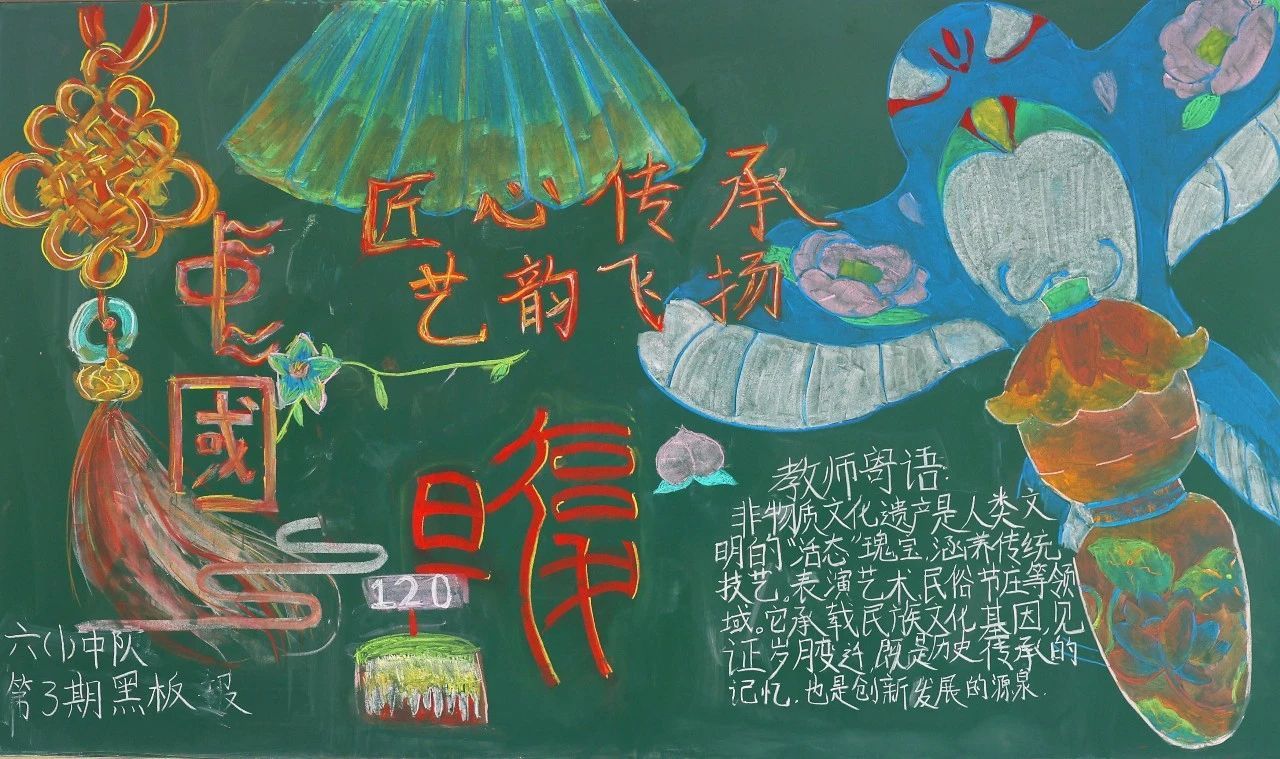 匠心传承
艺韵飞扬
中
國
旦
120
教师寄语.
非物质文化遗产是人类文
明的“活态”瑰宝,涵养传统
技艺。表演艺术、民俗节庄等领
域。它承载民族文化基因,见
证岁月变迁,既是历史传承的
记忆,也是创新发展的源泉.
六(1)中队
第3期黑板